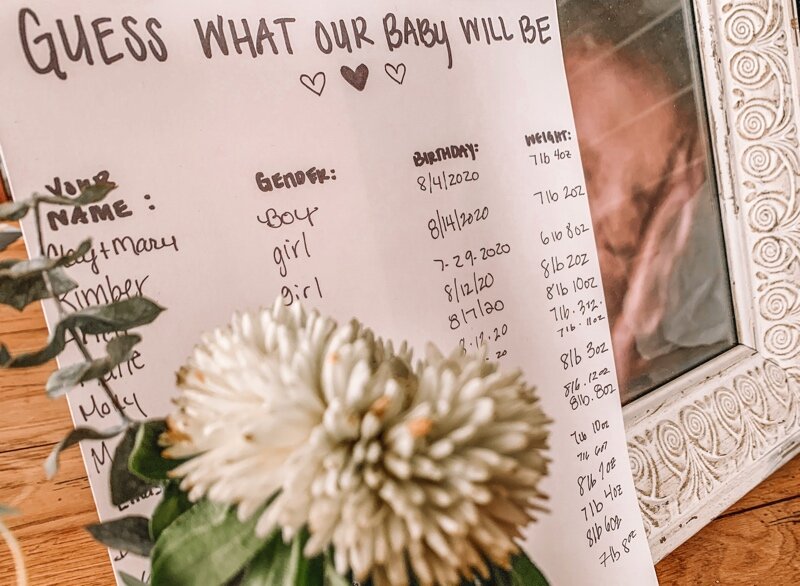 GUESS WHAT OUR BABY WILL BE
YOUR NAME: GENDER: BIRTHDAY: WEIGHT:
+ Mary Boy 8/4/2020 7lb 4oz
Kimber girl 8/14/2020 7lb 2oz
girl 7-29-2020 6lb 8oz
8/12/20 8lb 2oz
8/7/20 8lb 10oz
Molly 7lb. 3oz.
7lb. 11oz
8lb 3oz
8lb. 12oz
8lb. 8oz
7lb 10oz
8lb 9oz
7lb 4oz
8lb 6oz
7lb 8oz